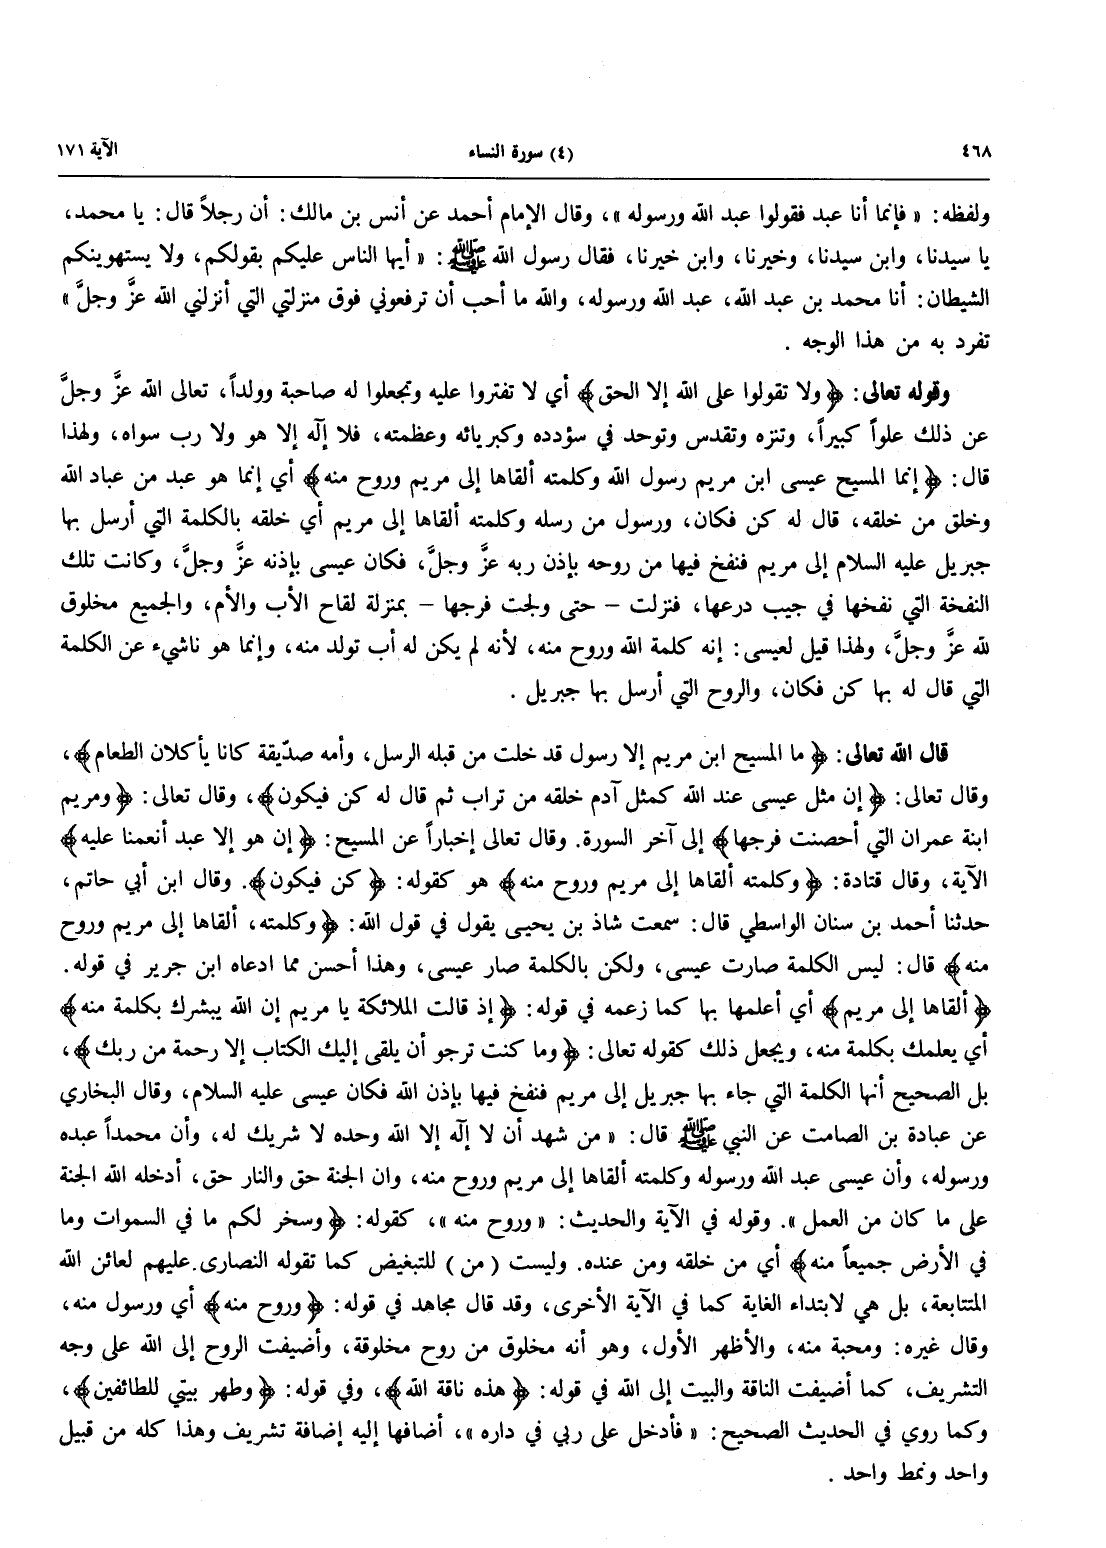 ٤٦٨ (٤) سورة النساء الآية ١٧١
ولفظه: « فإنما أنا عبد فقولوا عبد الله ورسوله »، وقال الإمام أحمد عن أنس بن مالك: أن رجلاً قال: يا محمد،
يا سيدنا، وابن سيدنا، وخيرنا، وابن خيرنا، فقال رسول الله ﷺ: « أيها الناس عليكم بقولكم، ولا يستهوينكم
الشيطان: أنا محمد بن عبد الله، عبد الله ورسوله، والله ما أحب أن ترفعوني فوق منزلتي التي أنزلني الله عزَّ وجلَّ »
تفرد به من هذا الوجه .
وقوله تعالى: ﴿ ولا تقولوا على الله إلا الحق﴾ أي لا تفتروا عليه وتجعلوا له صاحبة وولداً، تعالى الله عزَّ وجلَّ
عن ذلك علواً كبيراً، وتنزه وتقدس وتوحد في سؤدده وكبريائه وعظمته، فلا إلٓه إلا هو ولا رب سواه، ولهذا
قال: ﴿ إنما المسيح عيسى ابن مريم رسول الله وكلمته ألقاها إلى مريم وروح منه﴾ أي إنما هو عبد من عباد الله
وخلق من خلقه، قال له كن فكان، ورسول من رسله وكلمته ألقاها إلى مريم أي خلقه بالكلمة التي أرسل بها
جبريل عليه السلام إلى مريم فنفخ فيها من روحه بإذن ربه عزَّ وجلَّ، فكان عيسى بإذنه عزَّ وجلَّ، وكانت تلك
النفخة التي نفخها في جيب درعها، فنزلت - حتى ولجت فرجها - بمنزلة لقاح الأب والأم، والجميع مخلوق
لله عزَّ وجلَّ، ولهذا قيل لعيسى: إنه كلمة الله وروح منه، لأنه لم يكن له أب تولد منه، وإنما هو ناشيء عن الكلمة
التي قال له بها كن فكان، والروح التي أرسل بها جبريل .
قال الله تعالى: ﴿ ما المسيح ابن مريم إلا رسول قد خلت من قبله الرسل، وأمه صدّيقة كانا يأكلان الطعام﴾،
وقال تعالى: ﴿ إن مثل عيسى عند الله كمثل آدم خلقه من تراب ثم قال له كن فيكون﴾، وقال تعالى: ﴿ومريم
ابنة عمران التي أحصنت فرجها﴾ إلى آخر السورة. وقال تعالى إخباراً عن المسيح: ﴿ إن هو إلا عبد أنعمنا عليه﴾
الآية، وقال قتادة: ﴿ وكلمته ألقاها إلى مريم وروح منه﴾ هو كقوله: ﴿ كن فيكون﴾. وقال ابن أبي حاتم،
حدثنا أحمد بن سنان الواسطي قال: سمعت شاذ بن يحيى يقول في قول الله: ﴿ وكلمته، ألقاها إلى مريم وروح
منه﴾ قال: ليس الكلمة صارت عيسى، ولكن بالكلمة صار عيسى، وهذا أحسن مما ادعاه ابن جرير في قوله.
﴿ ألقاها إلى مريم﴾ أي أعلمها بها كما زعمه في قوله: ﴿ إذ قالت الملائكة يا مريم إن الله يبشرك بكلمة منه﴾
أي يعلمك بكلمة منه، ويجعل ذلك كقوله تعالى: ﴿ وما كنت ترجو أن يلقى إليك الكتاب إلا رحمة من ربك﴾،
بل الصحيح أنها الكلمة التي جاء بها جبريل إلى مريم فنفخ فيها بإذن الله فكان عيسى عليه السلام، وقال البخاري
عن عبادة بن الصامت عن النبي ﷺ قال: « من شهد أن لا إلٓه إلا الله وحده لا شريك له، وأن محمداً عبده
ورسوله، وأن عيسى عبد الله ورسوله وكلمته ألقاها إلى مريم وروح منه، وان الجنة حق والنار حق، أدخله الله الجنة
على ما كان من العمل ». وقوله في الآية والحديث: « وروح منه »، كقوله: ﴿ وسخر لكم ما في السموات وما
في الأرض جميعاً منه﴾ أي من خلقه ومن عنده. وليست (من) للتبغيض كما تقوله النصارى.عليهم لعائن الله
المتتابعة، بل هي لابتداء الغاية كما في الآية الأخرى، وقد قال مجاهد في قوله: ﴿ وروح منه﴾ أي ورسول منه،
وقال غيره: ومحبة منه، والأظهر الأول، وهو أنه مخلوق من روح مخلوقة، وأضيفت الروح إلى الله على وجه
التشريف، كما أضيفت الناقة والبيت إلى الله في قوله: ﴿ هذه ناقة الله﴾، وفي قوله: ﴿ وطهر بيتي للطائفين﴾،
وكما روي في الحديث الصحيح: « فأدخل على ربي في داره »، أضافها إليه إضافة تشريف وهذا كله من قبيل
واحد ونمط واحد .